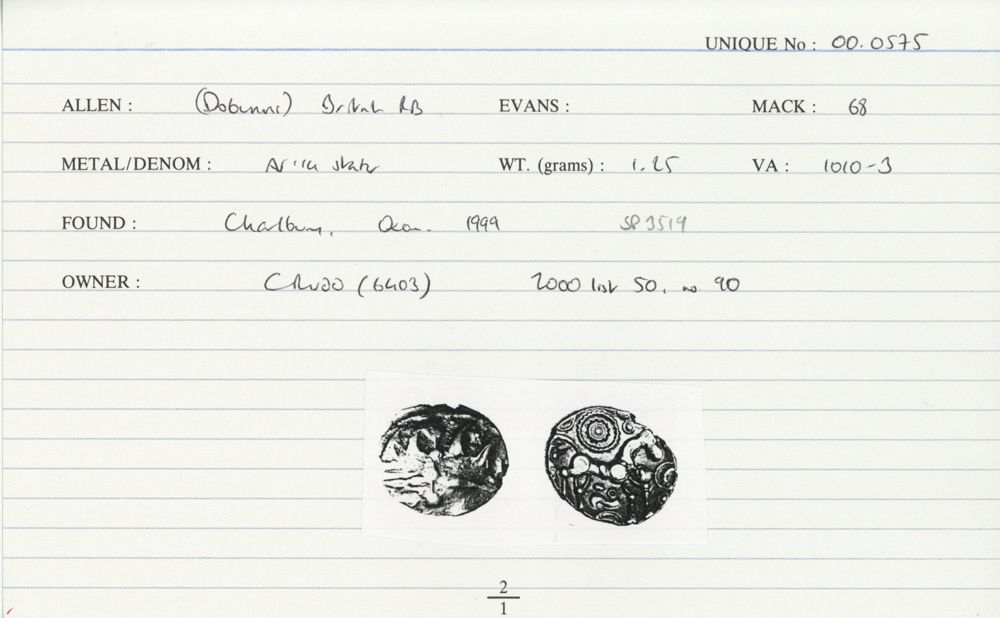 UNIQUE No : 00.0575
ALLEN : (Dobunni) British RB EVANS : MACK : 68
METAL/DENOM : AR 1/4 stater WT. (grams) : 1.25 VA : 1010-3
FOUND : Charlbury, Oxon. 1999 SP 3519
OWNER : CRUDD (6403) 2000 list 50, no 90
2
1